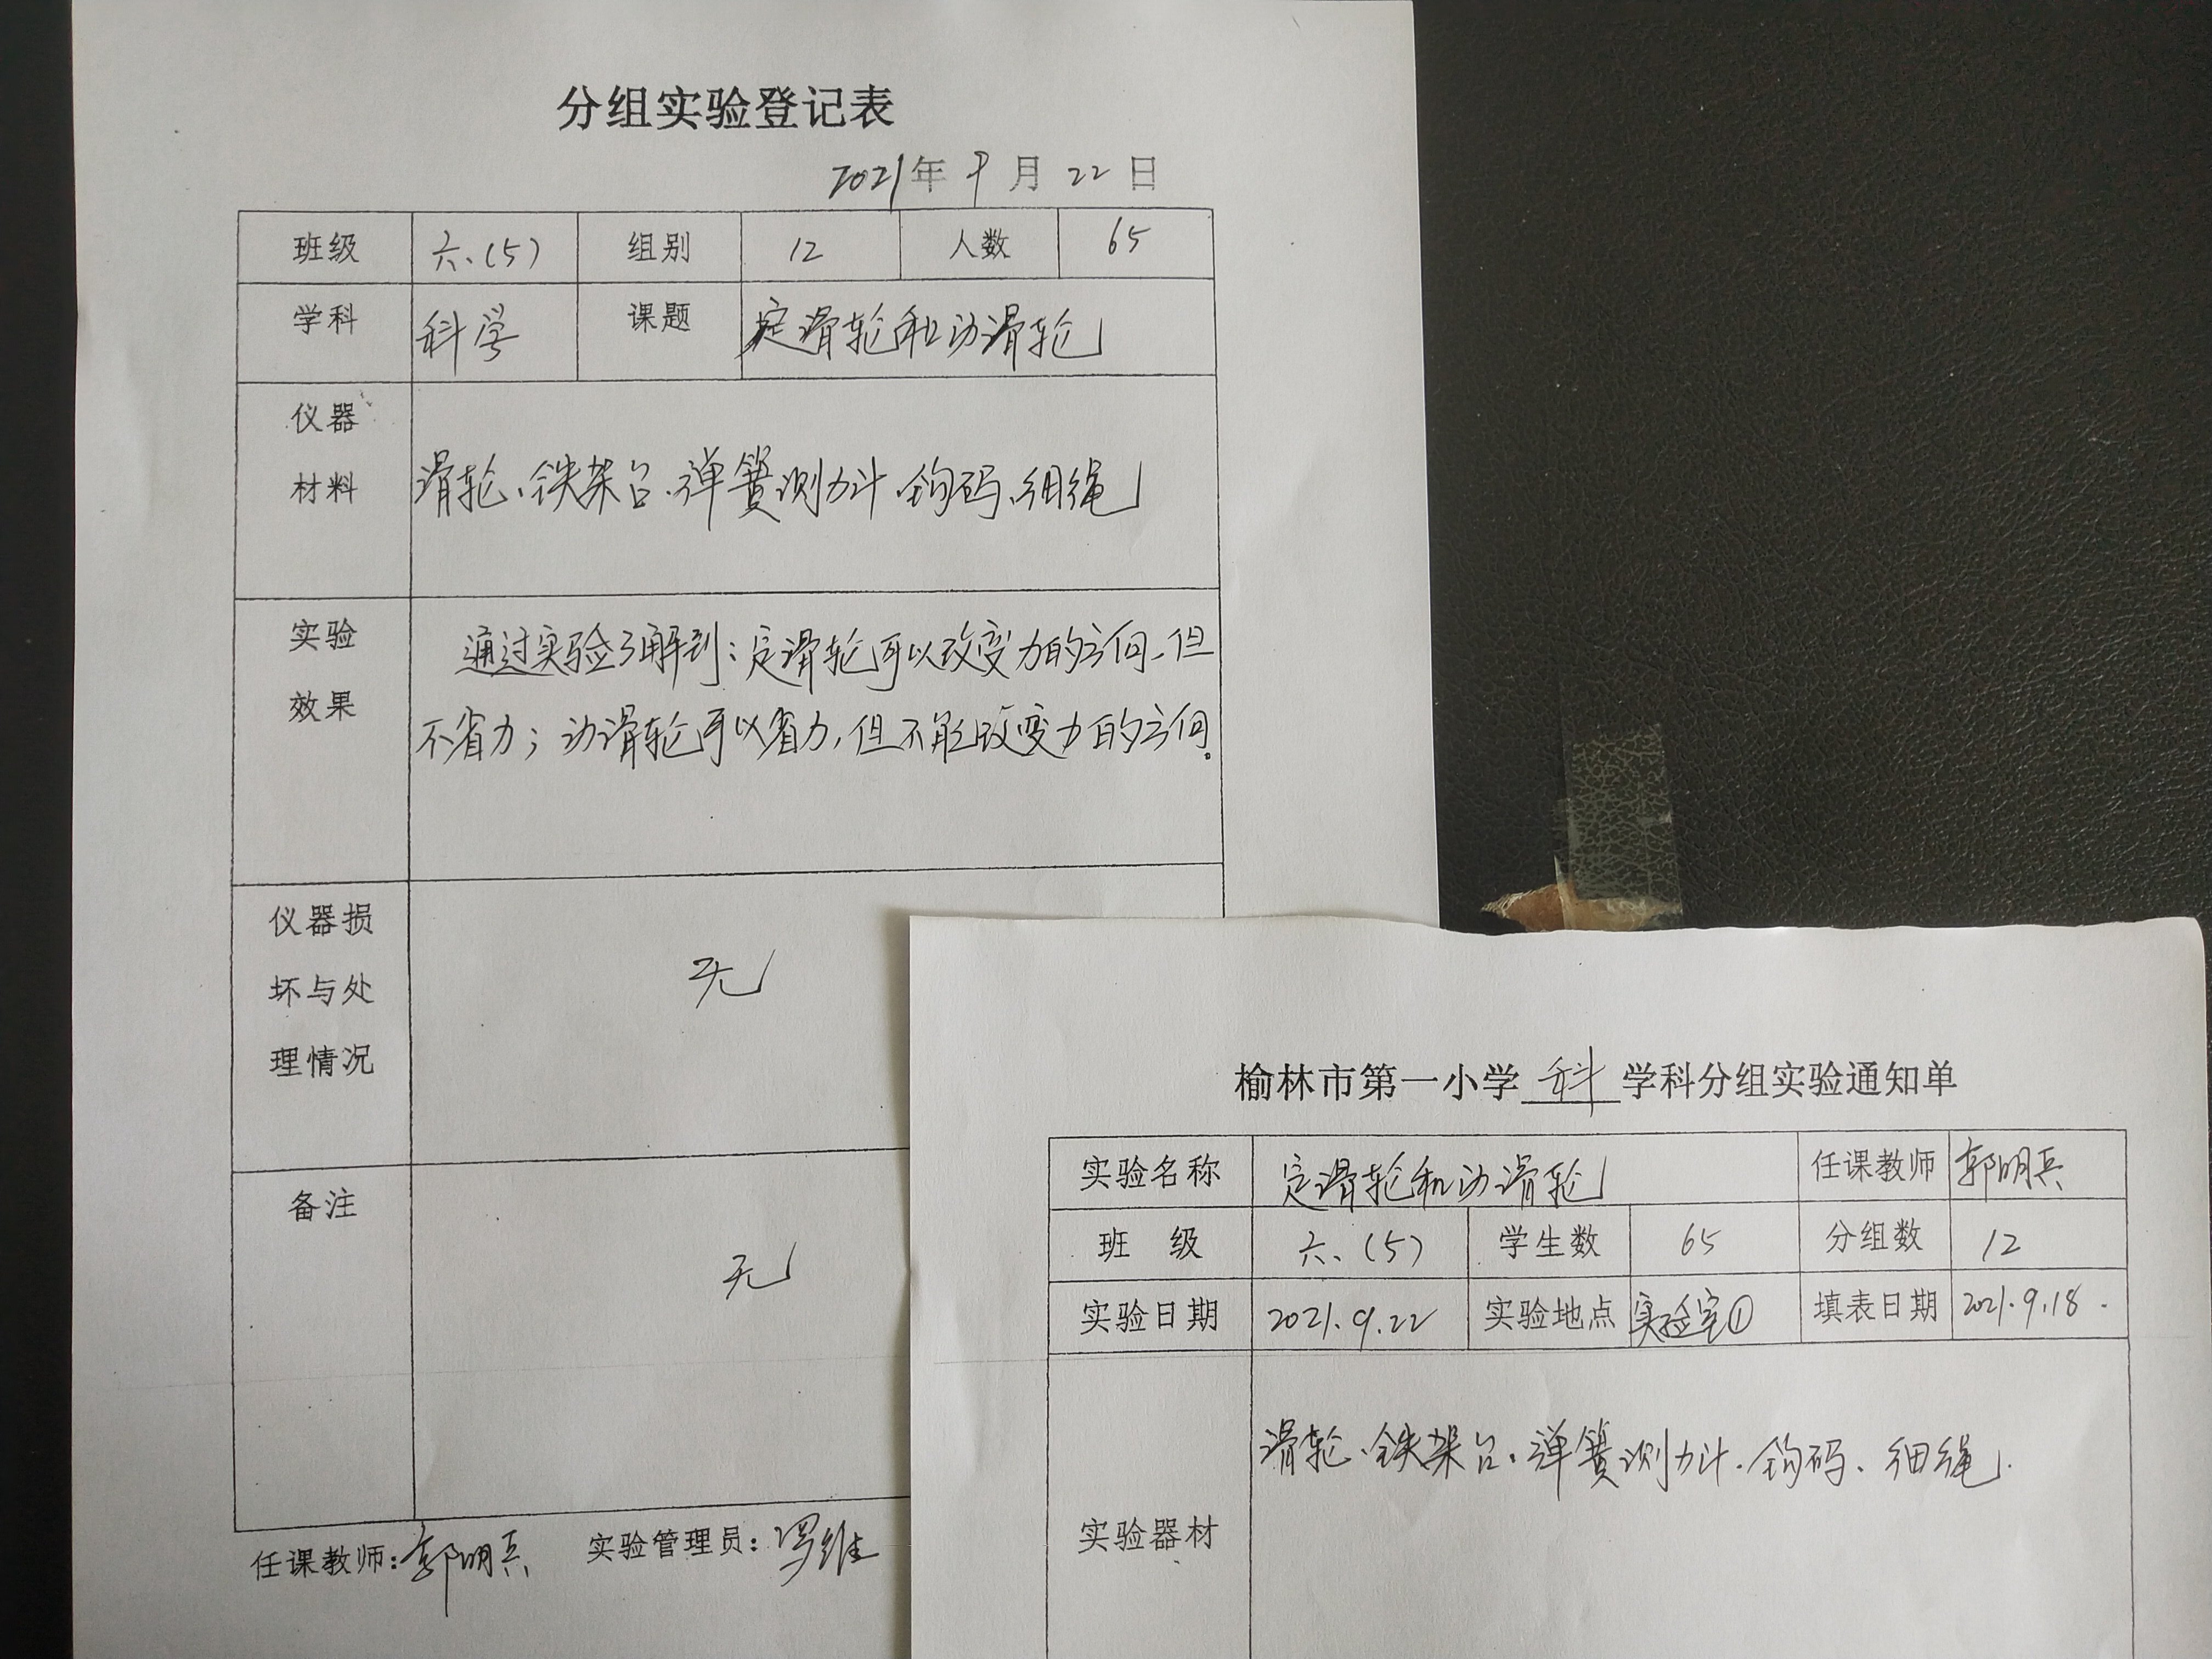 分组实验登记表
2021年 9 月 22 日
班级 六、(5) 组别 12 人数 65
学科 科学 课题 定滑轮和动滑轮
仪器
材料 滑轮、铁架台、弹簧测力计、钩码、细绳
实验 通过实验了解到:定滑轮可以改变力的方向,但
效果 不省力;动滑轮可以省力,但不能改变力的方向。
仪器损
坏与处 无
理情况
备注
无
任课教师:郭明兵 实验管理员:
榆林市第一小学 科 学科分组实验通知单
实验名称 定滑轮和动滑轮 任课教师 郭明兵
班 级 六、(5) 学生数 65 分组数 12
实验日期 2021.9.22 实验地点 实验室① 填表日期 2021.9.18.
滑轮、铁架台、弹簧测力计、钩码、细绳.
实验器材